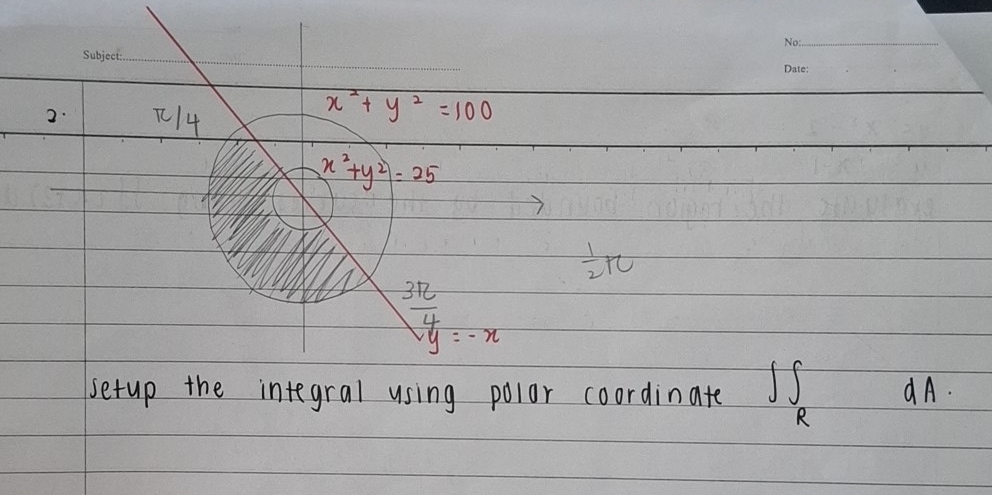 No:
Subject:
Date:
2.
π/4
x² + y² = 100
x²+y² = 25
½π
3π/4
y = -x
setup the integral using polar coordinate ∬_R dA.